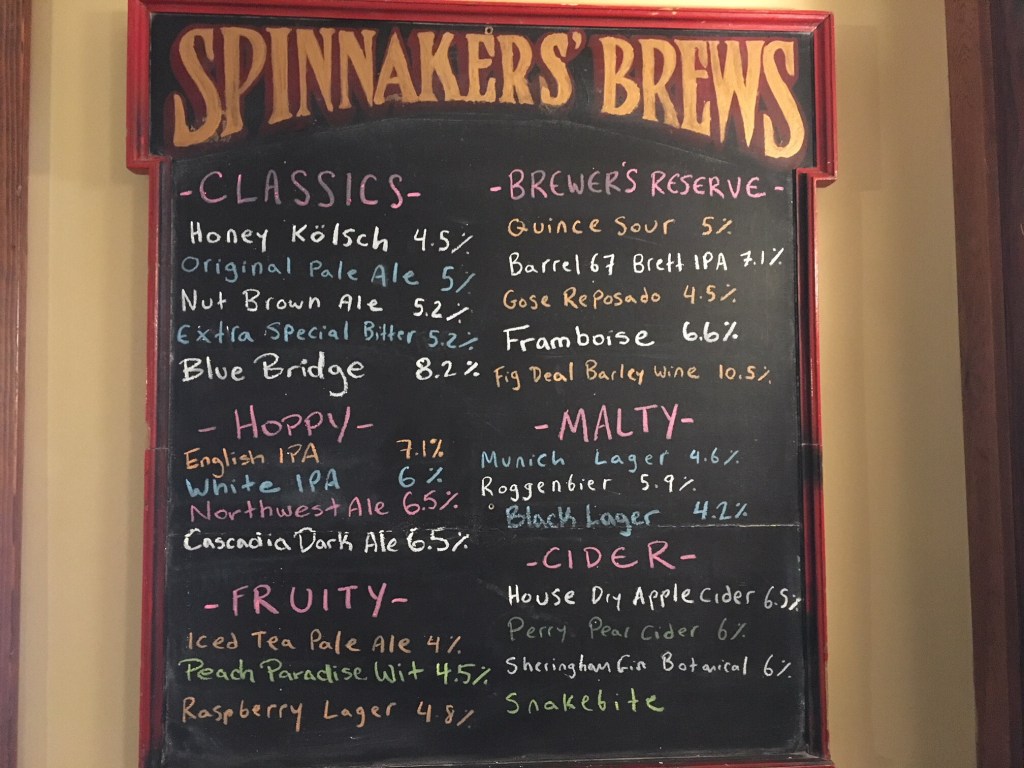 SPINNAKERS' BREWS
-CLASSICS-
Honey Kölsch 4.5%
Original Pale Ale 5%
Nut Brown Ale 5.2%
Extra Special Bitter 5.2%
Blue Bridge 8.2%
- HOPPY-
English IPA 7.1%
White IPA 6%
Northwest Ale 6.5%
Cascadia Dark Ale 6.5%
-FRUITY-
Iced Tea Pale Ale 4%
Peach Paradise Wit 4.5%
Raspberry Lager 4.8%
-BREWER'S RESERVE-
Quince Sour 5%
Barrel 67 Brett IPA 7.1%
Gose Reposado 4.5%
Framboise 6.6%
Fig Deal Barley Wine 10.5%
-MALTY-
Munich Lager 4.6%
Roggenbier 5.9%
Black Lager 4.2%
-CIDER-
House Dry Apple Cider 6.5%
Perry Pear Cider 6%
Sheringham Gin Botanical 6%
Snakebite